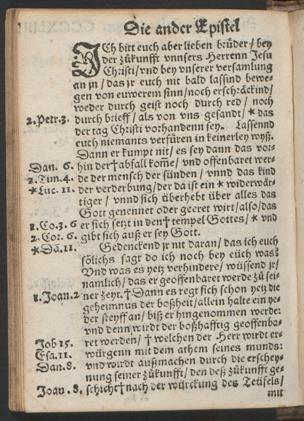 Die ander Epistel
ICh bitt euch aber lieben brüder/ bey
der zůkunfft vnnsers Herrenn Jesu
Christi/ vnd bey vnserer versamlung
an jn/ das jr euch nit bald lassind bewe-
gen von euwerem sinn/ noch erschräckind/
weder durch geist noch durch red/ noch
2. Petr. 3. durch brieff/ als von vns gesandt/ * das
der tag Christi vorhandenn sey. Lassennd
euch niemants verfüren in keinerley wyß.
Dann er kumpt nit/ es sey dann das vor-
Dan. 6. hin der † abfall kom̃e/ vnd offenbaret wer-
2. Tim. 4. de der mensch der sünden/ vnnd das kind
* Luc. 11. der verderbung/ der da ist ein * widerwär-
tiger/ vnnd sich überhebt über alles das
Gott genennet oder geeret wirt/ also/ das
1. Co. 3. 6 er sich setzt in den † tempel Gottes/ * vnd
2. Cor. 6. gibt sich auß er sey Gott.
* Da. 11. Gedenckend jr nit daran/ das ich euch
sölichs sagt do ich noch bey euch was?
Vnd was es yetz verhindere/ wüssend jr/
namlich/ das er geoffenbaret werde zů sei-
1. Joan. 2 ner zeyt. † Dann es regt sich schon yetz die
geheimnus der boßheit/ allein halte ein ye-
der steyff an/ biß er hingenommen werde:
vnd denn wirdt der boßhafftig geoffenba-
Job 15. ret werden/ † welchen der Herr wirt er-
Esa. 11. würgenn mit dem athem seines munds:
Dan. 8. vnd wirdt außmachen durch die erschey-
nung seiner zůkunfft/ den deß zůkunfft ge-
Joan. 8. schicht † nach der würckung des Teüfels/
mit